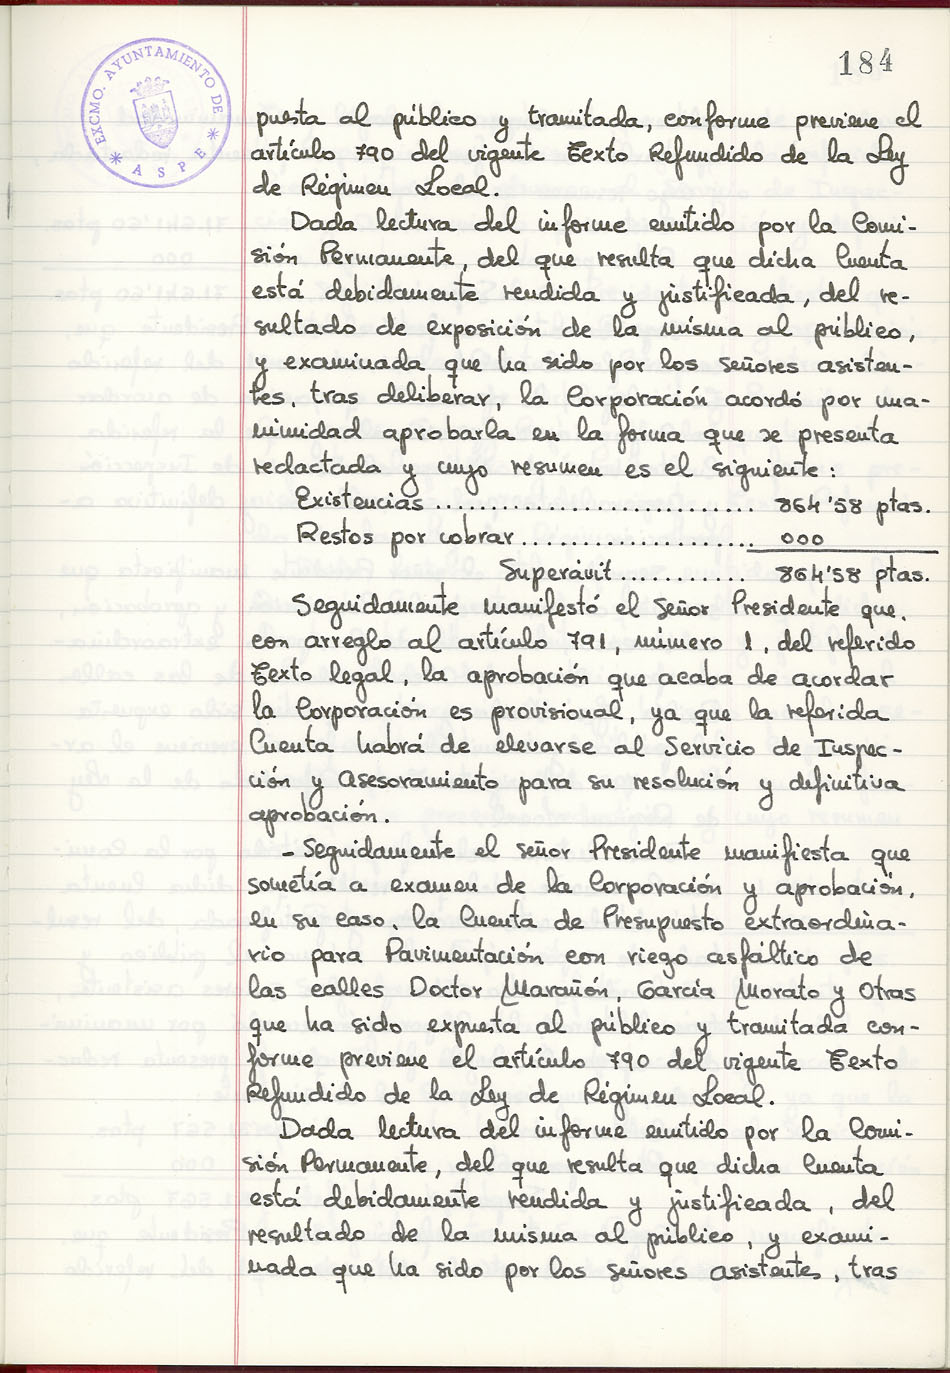 184
EXCMO. AYUNTAMIENTO DE
* ASPE *
puesta al público y tramitada, conforme previene el
artículo 790 del vigente Texto Refundido de la Ley
de Régimen Local.
Dada lectura del informe emitido por la Comi-
sión Permanente, del que resulta que dicha Cuenta
está debidamente rendida y justificada, del re-
sultado de exposición de la misma al público,
y examinada que ha sido por los señores asisten-
tes, tras deliberar, la Corporación acordó por una-
nimidad aprobarla en la forma que se presenta
redactada y cuyo resumen es el siguiente:
Existencias ............................ 864'58 ptas.
Restos por cobrar..................... 000
Superávit........... 864'58 ptas.
Seguidamente manifestó el Señor Presidente que,
con arreglo al artículo 791, número 1, del referido
Texto legal, la aprobación que acaba de acordar
la Corporación es provisional, ya que la referida
Cuenta habrá de elevarse al Servicio de Inspec-
ción y Asesoramiento para su resolución y definitiva
aprobación.
- Seguidamente el señor Presidente manifiesta que
sometía a examen de la Corporación y aprobación,
en su caso, la Cuenta de Presupuesto extraordina-
rio para Pavimentación con riego asfáltico de
las calles Doctor Marañón, García Morato y Otras
que ha sido expuesta al público y tramitada con-
forme previene el artículo 790 del vigente Texto
Refundido de la Ley de Régimen Local.
Dada lectura del informe emitido por la Comi-
sión Permanente, del que resulta que dicha Cuenta
está debidamente rendida y justificada, del
resultado de la misma al público, y exami-
nada que ha sido por los señores asistentes, tras